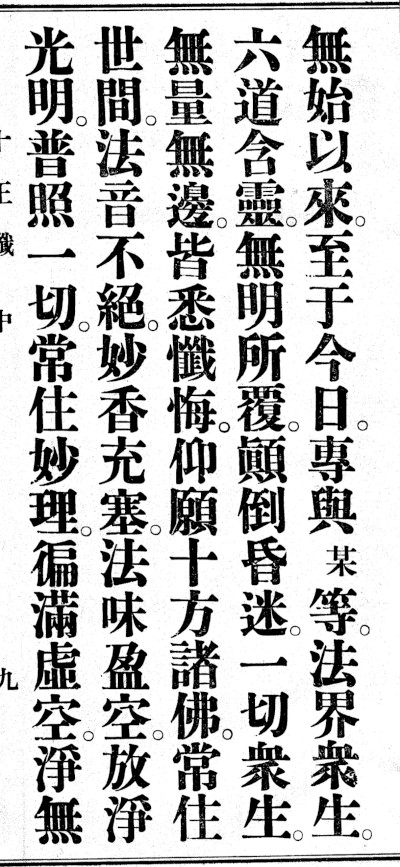 無始以來。至于今日。專與某等。法界衆生。
六道含靈。無明所覆。顛倒昏迷。一切衆生。
無量無邊。皆悉懺悔。仰願十方諸佛。常住
世間。法音不絕。妙香充塞。法味盈空。放淨
光明。普照一切。常住妙理。徧滿虛空。淨無
十王懺中 九